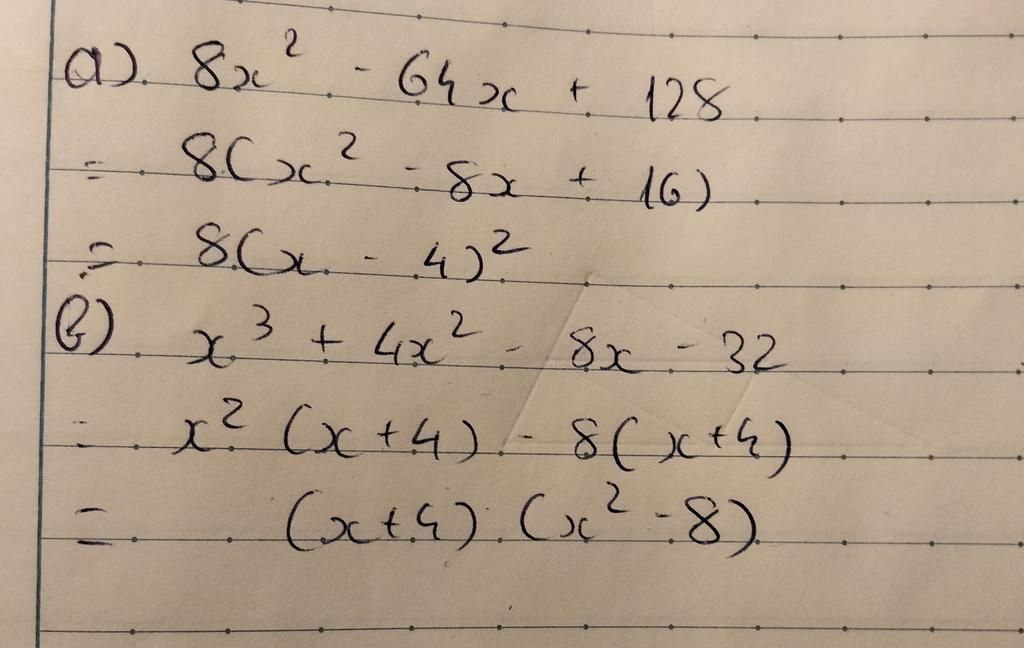 a). 8x² - 64x + 128
= 8(x² - 8x + 16)
= 8(x - 4)²
b) x³ + 4x² - 8x - 32
= x² (x+4) - 8(x+4)
= (x+4) (x² - 8)